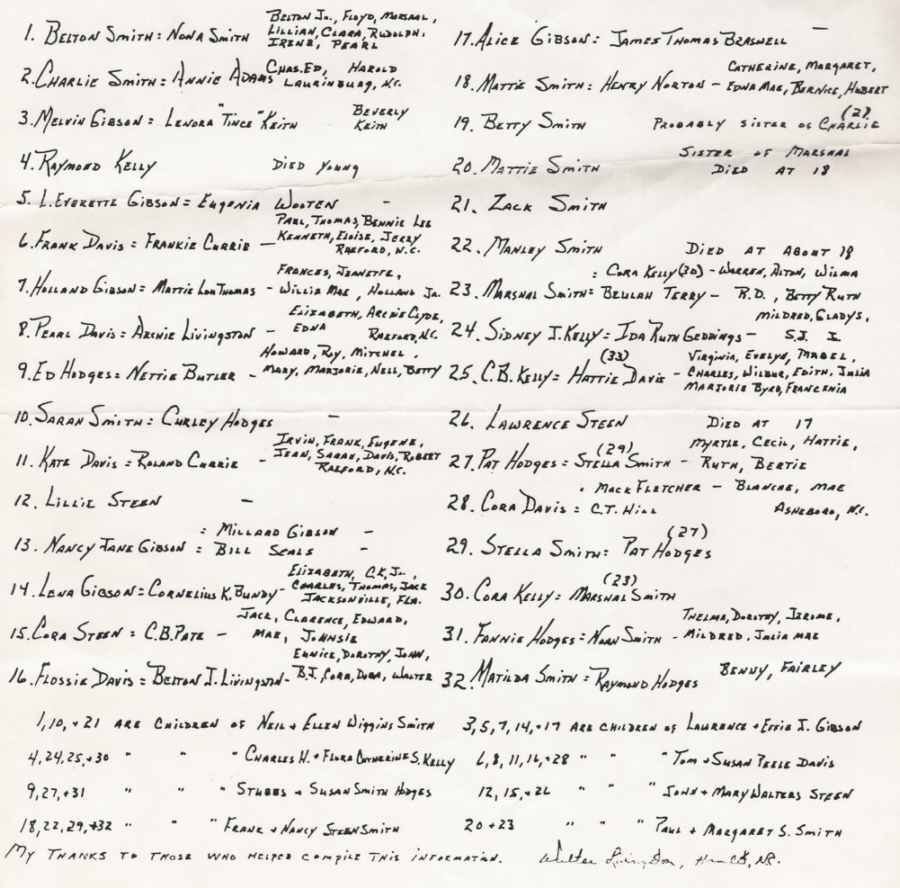 1. Belton Smith: Nona Smith Belton Jr., Floyd, Marshal,
Lillian, Clara, Rudolph,
Irene, Pearl
2. Charlie Smith: Annie Adams Chas. Ed, Harold
Laurinburg, N.C.
3. Melvin Gibson = Lenora "Tince" Keith Beverly
Keith
4. Raymond Kelly Died young
5. L. Everette Gibson = Eugenia Wooten -
6. Frank Davis = Frankie Currie - Paul, Thomas, Bennie Lee
Kenneth, Eloise, Jerry
Raeford, N.C.
7. Holland Gibson = Mattie Lou Thomas - Frances, Jeanette,
Willie Mae, Holland Jr.
8. Pearl Davis = Archie Livingston - Elizabeth, Archie Clyde,
Edna Raeford, N.C.
9. Ed Hodges = Nettie Butler - Howard, Roy, Mitchel,
Mary, Marjorie, Nell, Betty
10. Sarah Smith = Curley Hodges -
11. Kate Davis = Roland Currie - Irvin, Frank, Eugene,
Jean, Sarah, David, Robert
Raeford, N.C.
12. Lillie Steen -
: Millard Gibson -
13. Nancy Jane Gibson = Bill Seals -
14. Lena Gibson = Cornelius K. Bundy - Elizabeth, C.K. Jr.,
Charles, Thomas, Jack
Jacksonville, Fla.
15. Cora Steen = C.B. Pate - Jack, Clarence, Edward,
Mae, Johnsie
16. Flossie Davis = Belton I. Livingston - Eunice, Dorothy, John,
B.I., Cora, Dora, Walter
17. Alice Gibson = James Thomas Braswell -
18. Mattie Smith: Henry Norton - Catherine, Margaret,
Edna Mae, Bernice, Hubert
19. Betty Smith Probably sister of Charlie (2)
20. Mattie Smith Sister of Marshal
Died at 18
21. Zack Smith
22. Manley Smith Died at about 18
: Cora Kelly (30) - Warren, Alton, Wilma
23. Marshal Smith = Beulah Terry - R.D., Betty Ruth
Mildred, Gladys,
24. Sidney I. Kelly = Ida Ruth Geddings - S.I. I
25. C.B. Kelly = Hattie Davis (33) - Virginia, Evelyn, Mabel,
Charles, Wilbur, Edith, Julia
Marjorie Byrd, Francenia
26. Lawrence Steen Died at 17
27. Pat Hodges = Stella Smith (29) - Myrtle, Cecil, Hattie,
Ruth, Bertie
: Mack Fletcher - Blanche, Mae
28. Cora Davis = C.T. Hill Asheboro, N.C.
29. Stella Smith = Pat Hodges (27)
30. Cora Kelly = Marshal Smith (23)
31. Fannie Hodges = Noah Smith - Thelma, Dorothy, Jerome,
Mildred, Julia Mae
32. Matilda Smith = Raymond Hodges Benny, Fairley
1, 10, + 21 are children of Neil + Ellen Wiggins Smith
4, 24, 25, + 30 " " " Charles H. + Flora Catherine S. Kelly
9, 27, + 31 " " " Stubbs + Susan Smith Hodges
18, 22, 29, + 32 " " " Frank + Nancy Steen Smith
3, 5, 7, 14, + 17 are children of Lawrence + Effie I. Gibson
6, 8, 11, 16, + 28 " " " Tom + Susan Peele Davis
12, 15, + 26 " " " John + Mary Walters Steen
20 + 23 " " " Paul + Margaret S. Smith
My thanks to those who helped compile this information. Walter Livingston,